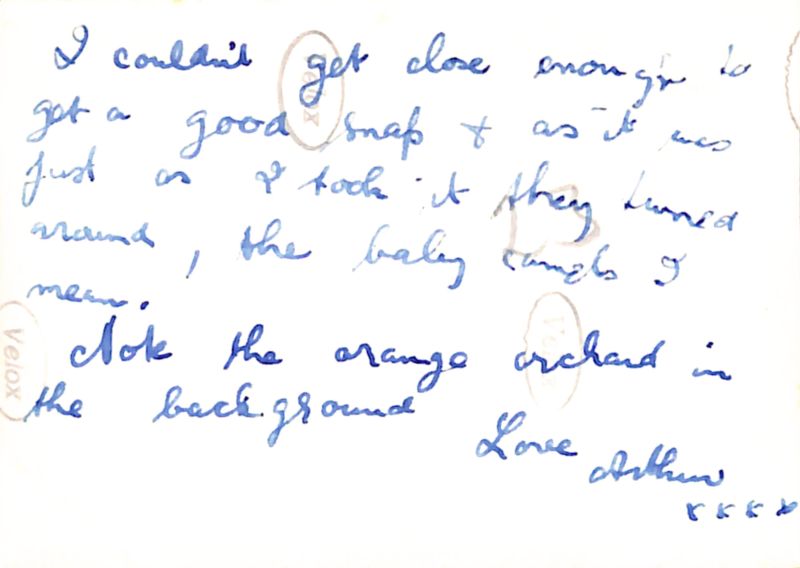 I couldn't get close enough to
get a good snap & as it was
just as I took it they turned
around, the baby camels I
mean.
Note the orange orchard in
the background
Love
Arthur
x x x x
Velox
Velox
Velox